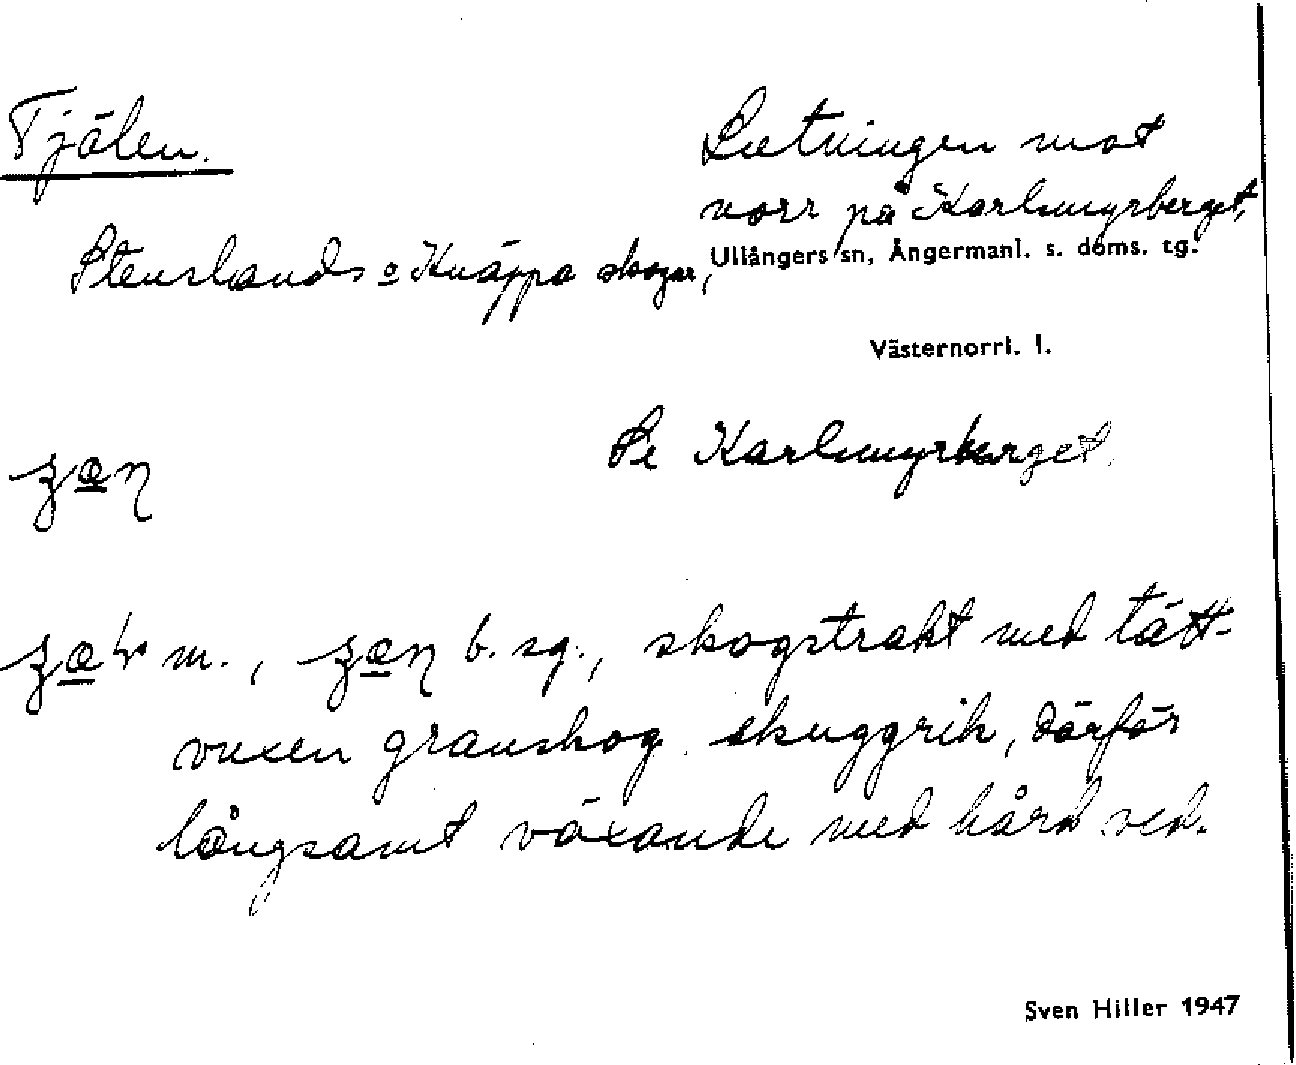 Tjälen.
Slutningen mot
norr på Karlsmyrberget,
Stenslands o Knäppa skogar,
Ullångers sn, Ångermanl. s. doms. tg.
Västernorrl. l.
Se Karlsmyrberget.
m., b. sg., skogstrakt med tätt-
vuxen granskog, skuggrik, därför
långsamt växande med hård ved.
Sven Hiller 1947